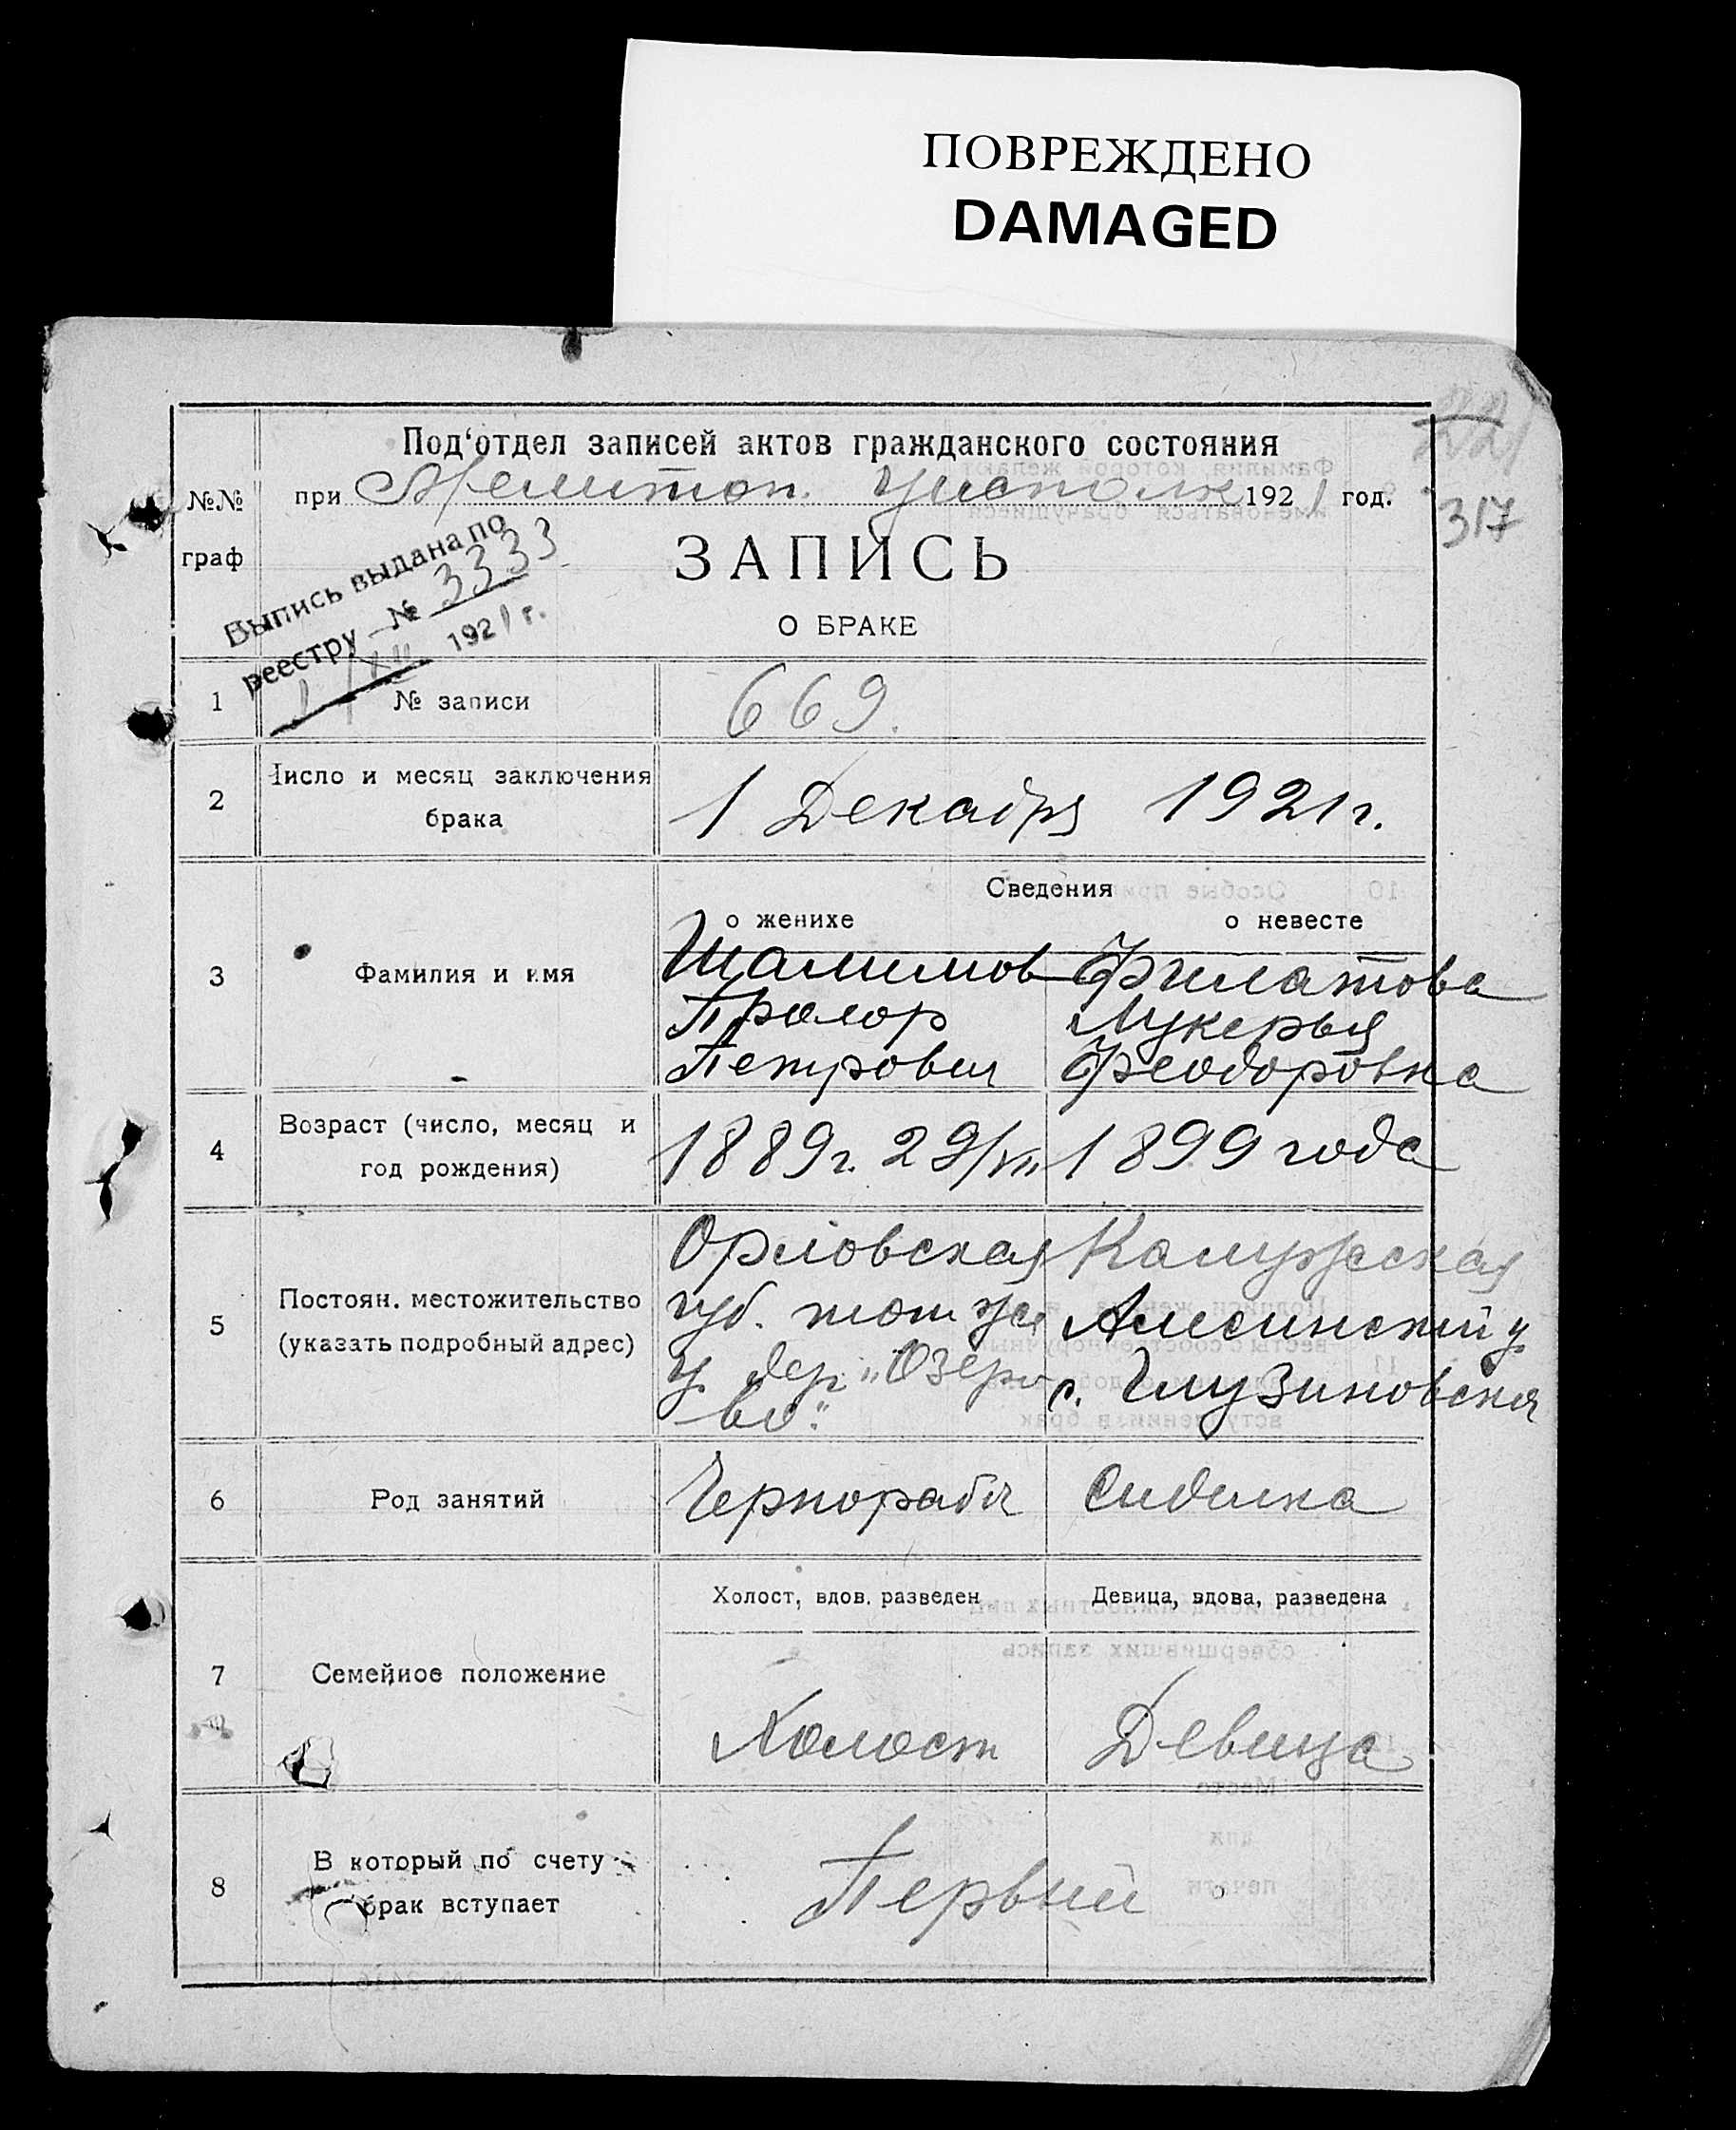 ПОВРЕЖДЕНО
DAMAGED
317
№№ граф
Под'отдел записей актов гражданского состояния
при Мелитоп. Уисполк 1921 год.
ЗАПИСЬ
О БРАКЕ
Выпись выдана по
реестру № 3333
1/XII 1921 г.
1 № записи 669.
2 Число и месяц заключения
брака
1 Декабря 1921 г.
Сведения
о женихе о невесте
3 Фамилия и имя
Шалимов Филатова
Фролор Лукерья
Петрович Феодоровна
4 Возраст (число, месяц и
год рождения)
1889г. 29/VII 1899 года
5 Постоян. местожительство
(указать подробный адрес)
Орловская Калужская
губ. том же
у. дер. „Озеро-
во." с.
6 Род занятий Чернорабч Сиделка
Холост, вдов. разведен Девица, вдова, разведена
7 Семейное положение
Холост Девица
8 В который по счету
брак вступает
Первый